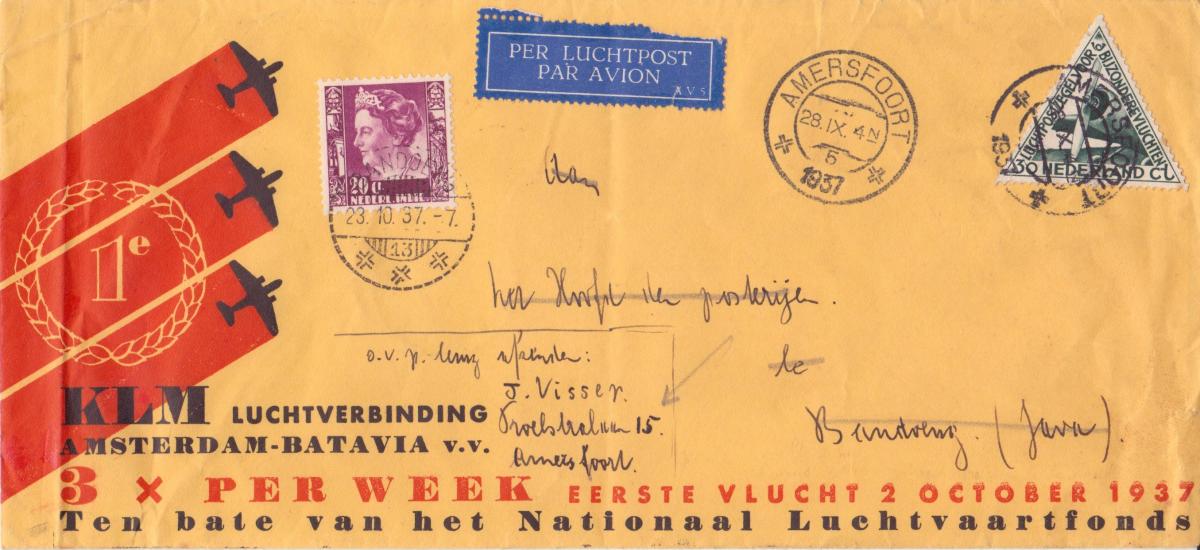 PER LUCHTPOST
PAR AVION
AVS
AMERSFOORT
28.IX. 4N
5
1937
LUCHTPOSTZEGEL VOOR BIJZONDERE VLUCHTEN
30 NEDERLAND CT
AMERSFOORT
193
20 C
NEDERL. INDIË
BANDOENG
23. 10. 37. -7.
13
Aan
het Hoofd der posterijen.
te
Bandoeng. (Java).
o.v.p. terug afzender:
J. Visser.
15.
Amersfoort.
1e
KLM LUCHTVERBINDING
AMSTERDAM-BATAVIA v.v.
3 × PER WEEK EERSTE VLUCHT 2 OCTOBER 1937
Ten bate van het Nationaal Luchtvaartfonds